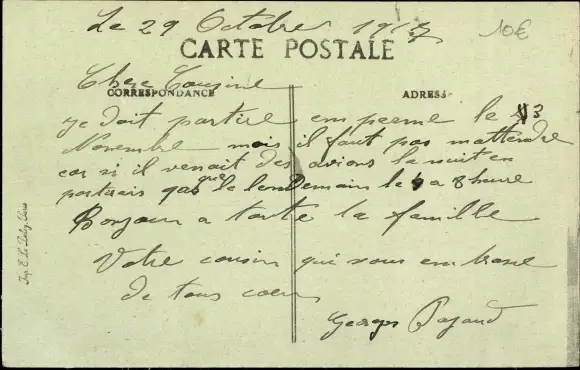 Le 29 Octobre 1917
10€
CARTE POSTALE
Chere Cousine
CORRESPONDANCE
ADRESSE
je doit partire em perme le 3
Novembre mais il faut pas mattendre
car si il venait des avions la nuit en
partirais que le lendemain le 4 a 8 heure
Bonjour a toute la famille
Votre cousin qui vous embrasse
de tous coeur
Georges
Imp. E. Le Deley, Paris